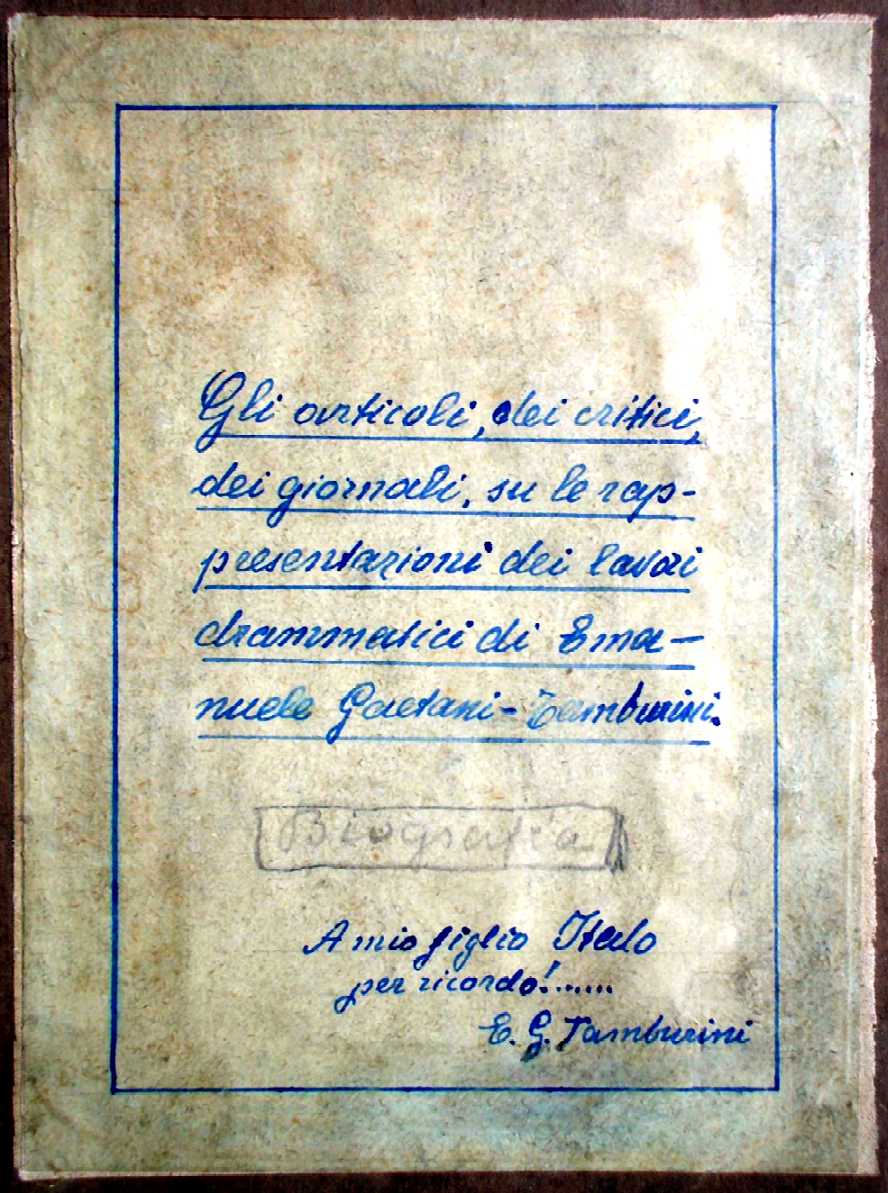 Gli articoli, dei critici,
dei giornali, su le rap-
presentazioni dei lavori
drammatici di Ema-
nuele Gaetani-Tamburini.
Biografia
A mio figlio Italo
per ricordo!......
E. G. Tamburini